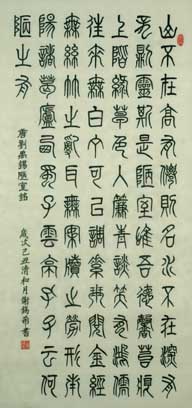 山不在高有仙則名水不在深有
龍則靈斯是陋室唯吾德馨苔痕
上階綠草色入簾青談笑有鴻儒
往來無白丁可以調素琴閱金經
無絲竹之亂耳無案牘之勞形南
陽諸葛廬西蜀子雲亭孔子云何
陋之有
唐劉禹錫陋室銘
歲次己丑清和月謝錫書